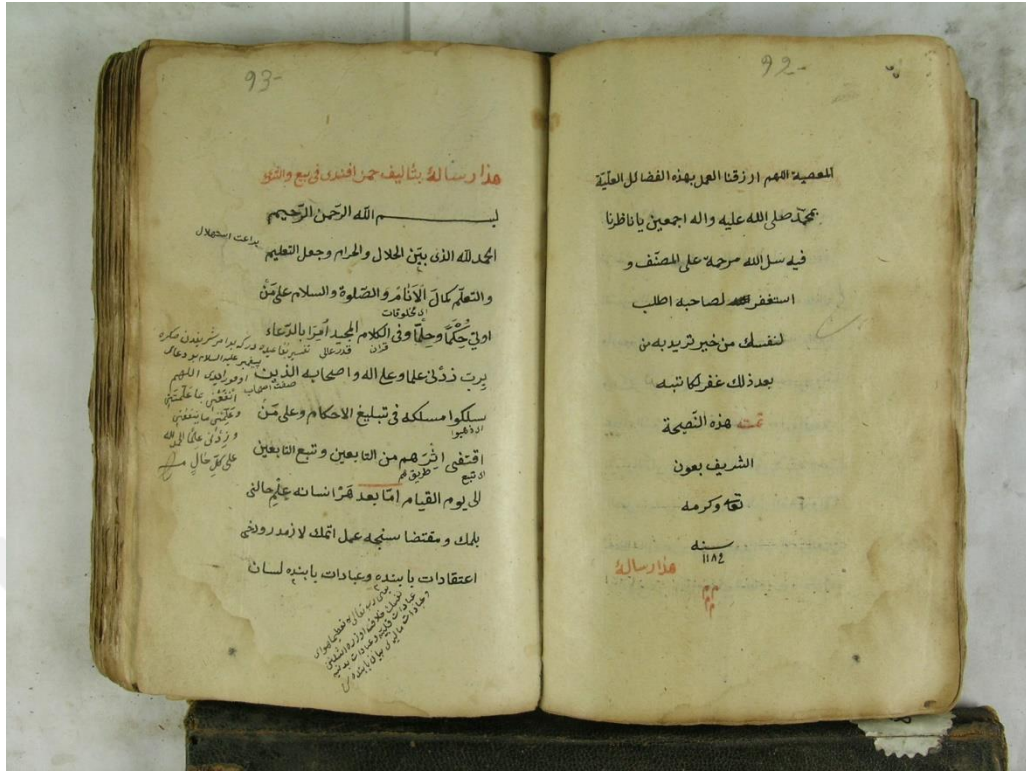 92-
المعصية اللهم ارزقنا العمل بهذه الفضائل العليّة
بمحمّد صلى الله عليه واله اجمعين يا ناظرنا
فيه سل الله مرحمة على المصنّف و
استغفر لصاحبه اطلب
لنفسك من خير تريد به من
بعد ذلك غفرا لكاتبه
تمت هذه النّصيحة
الشريف بعون
وكرمه
سنه
١١٨٤
هذا رسالة
93-
هذا رسالة بتأليف افندى فى بيع والشرى
بسم الله الرّحمن الرّحيم
الحمد لله الذى بيّن الحلال والحرام وجعل التعليم
براعت استهلال
والتعلّم كمال الأَنَام والصّلوة والسلام على مَنْ
اى مخلوقات
اوتي حِكْمًا وحِلْمًا وفى الكلام المجيد اُمِرَ بالدّعاء
قرآن
بربّ زدْنى علما وعلى اله واصحابه الذين
صفت اصحاب
سلكوا مسلكه فى تبليغ الاحكام وعلى مَنْ
اى ذهبوا
اقتفى اثرَهم من التابعين وتبع التابعين
اى تبع
طريق هم
الى يوم القيام امّا بعد هر انسانه عِلْمِ حالنى
بلمك ومقتضا سنجه عمل اتمك لازمدر ودخى
اعتقادات يا بنده وعبادات يا بنده لسان
بيغمبر عليه السلام بو دعاى
اللهم
انفَعْنى بما علّمتَنى
وعلّمنى ما ينفعنى
وزدْنى علمًا الحمد لله
على كلّ حالٍ